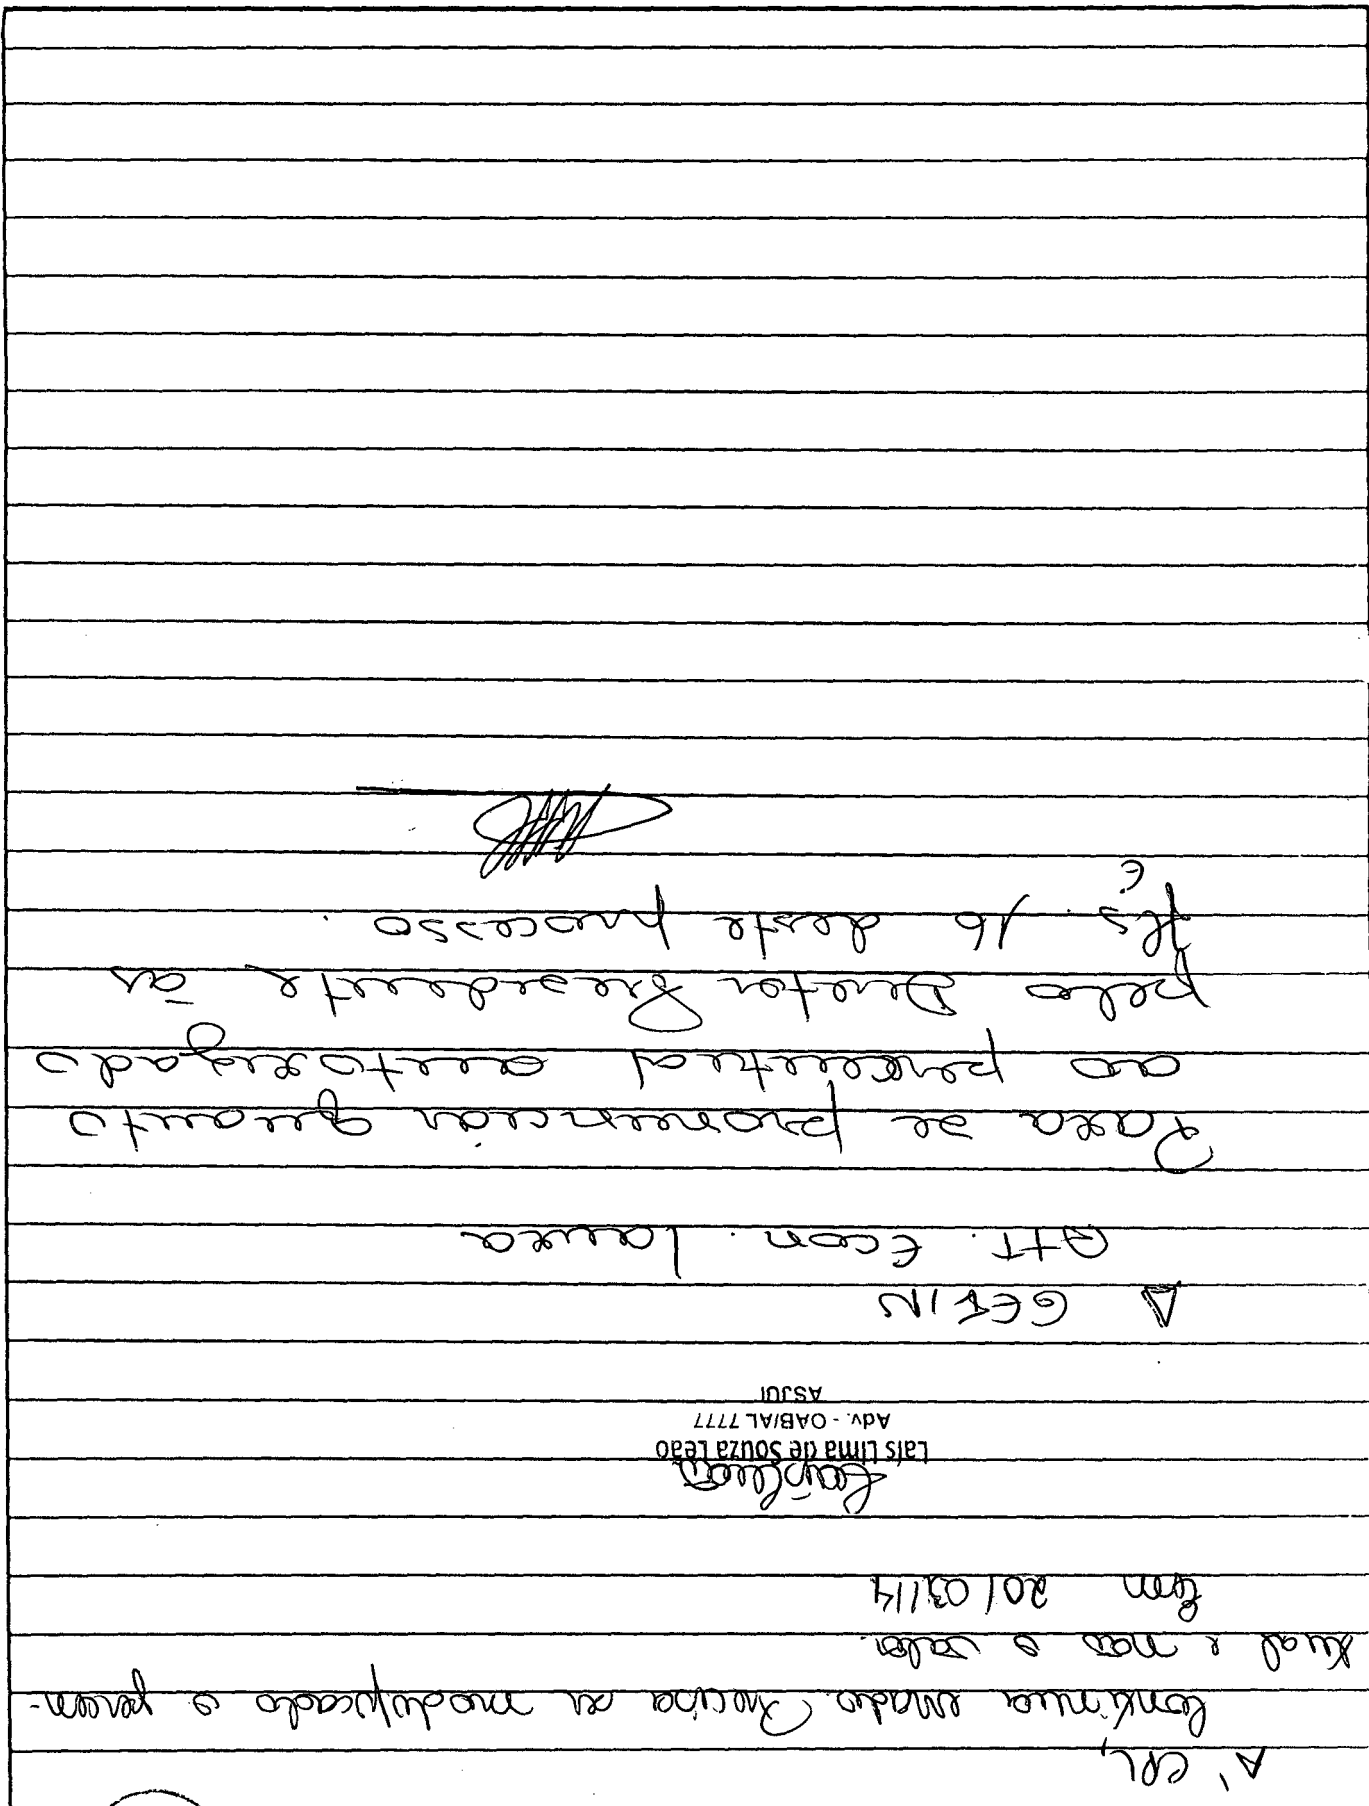 À CPL,
Continua errado. Precisa ser modificado o percen-
tual e não o valor.
Em 20/03/14
Laís Lima de Souza Leão
Adv. - OAB/AL 7777
ASJUI
A GEFIN
Att. Econ. Laura
Para se pronunciar quanto
ao percentual autorizado
pelo Diretor Presidente às
fls. 16 deste processo.